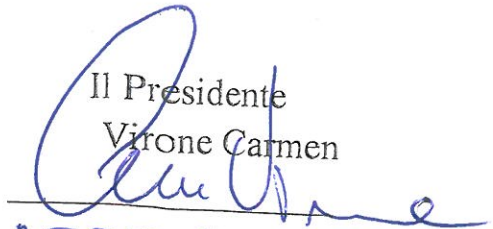 Il Presidente
Virone Carmen